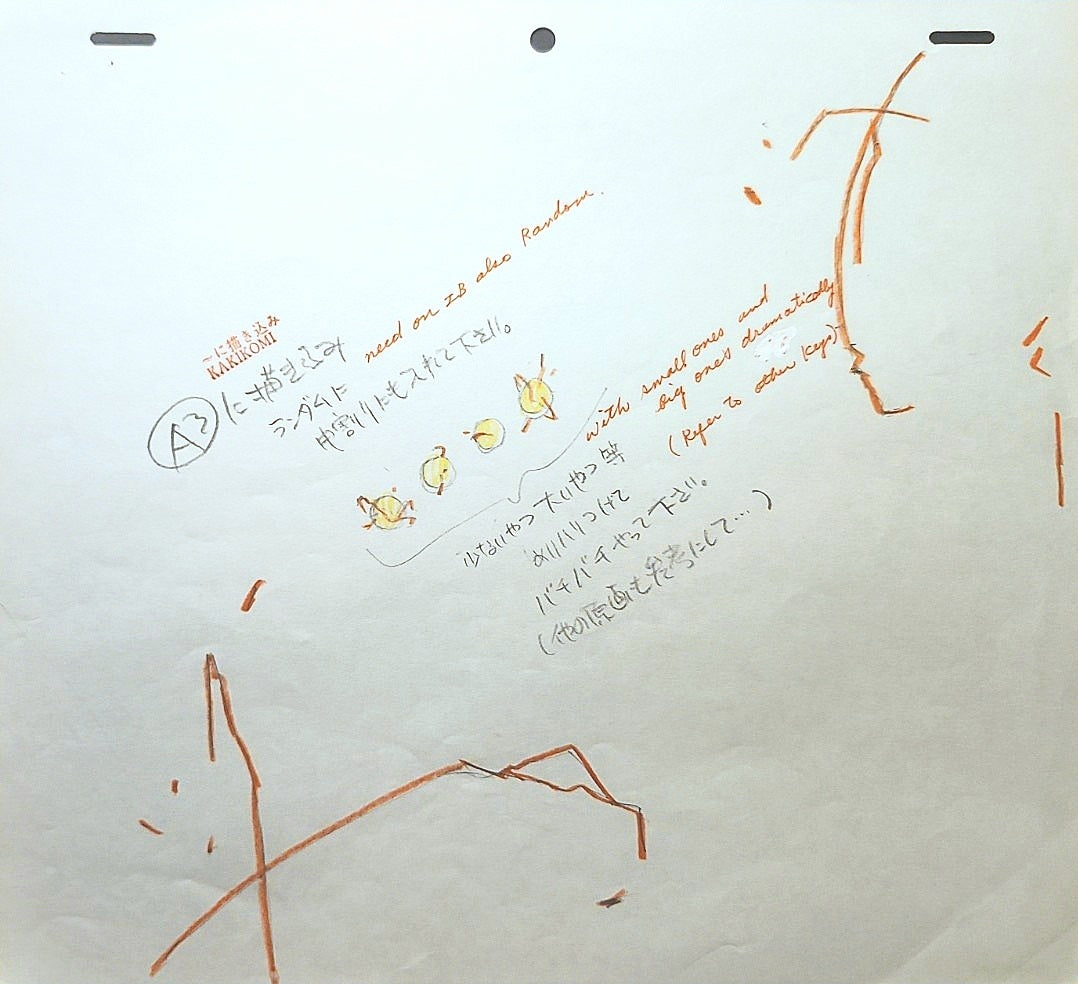 〜に描き込み
KAKIKOMI
A3 に描き込み
ランダムに
中割りにも入れて下さい。
need on IB also Random.
with small ones and
big one's dramatically
(Refer to other Keys)
少ないやつ 大いやつ 等
めりハリつけて
バチバチやって下さい。
(他の原画も参考にして…)